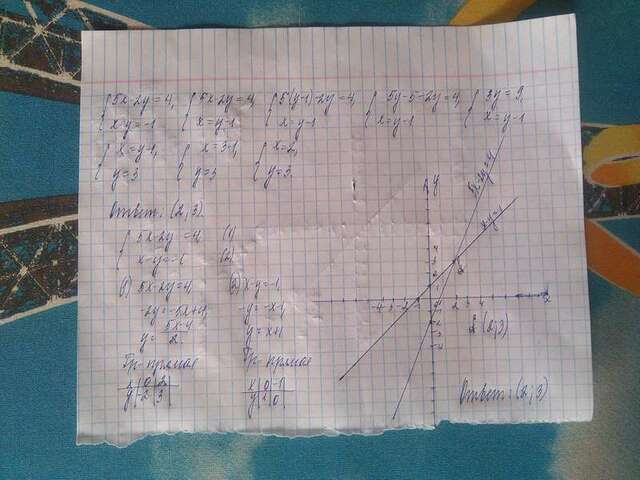 {5x-2y=4, {5x-2y=4, {5(y-1)-2y=4, {5y-5-2y=4, {3y=9,
{x-y=-1 {x=y-1 {x=y-1 {x=y-1 {x=y-1
{x=y-1, {x=3-1, {x=2,
{y=3 {y=3 {y=3
Ответ: (2;3)
{5x-2y=4 (1)
{x-y=-1 (2)
1) 5x-2y=4
-2y=-5x+4
y=5x-4/2
Гр-прямая
x|0|2
y|-2|3
2) x-y=-1
-y=-x-1
y=x+1
Гр-прямая
x|0|-1
y|1|0
y
5x-2y=4
x-y=-1
x
(2;3)
Ответ: (2;3)